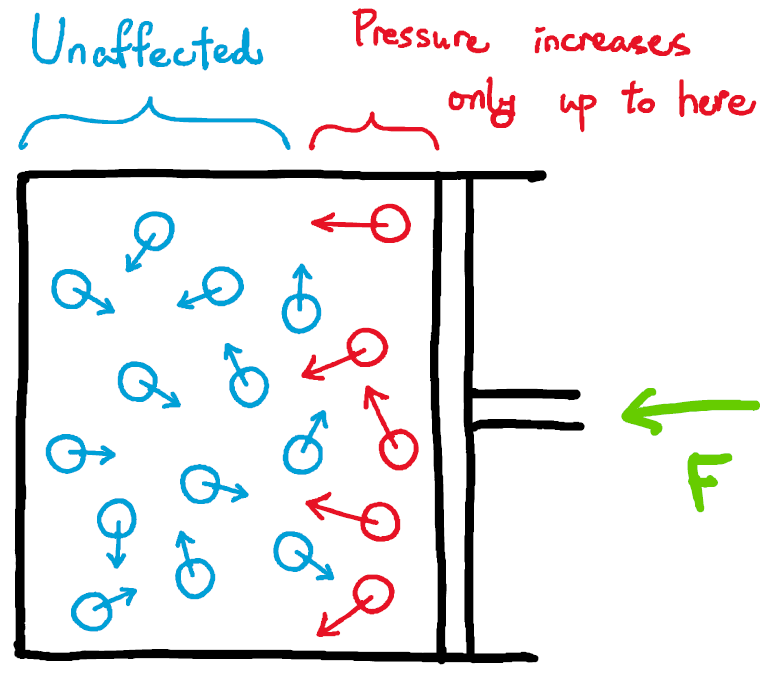 Unaffected
Pressure increases
only up to here
F